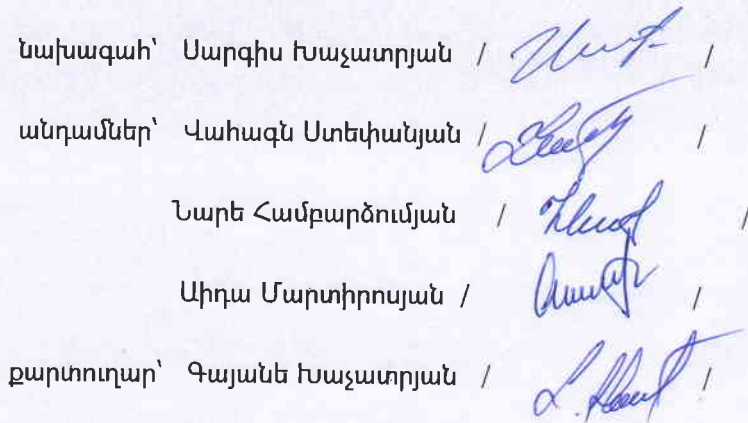 նախագահ՝ Սարգիս Խաչատրյան / /
անդամներ՝ Վահագն Ստեփանյան / /
Նարե Համբարձումյան / /
Աիդա Մարտիրոսյան / /
քարտուղար՝ Գայանե Խաչատրյան / /